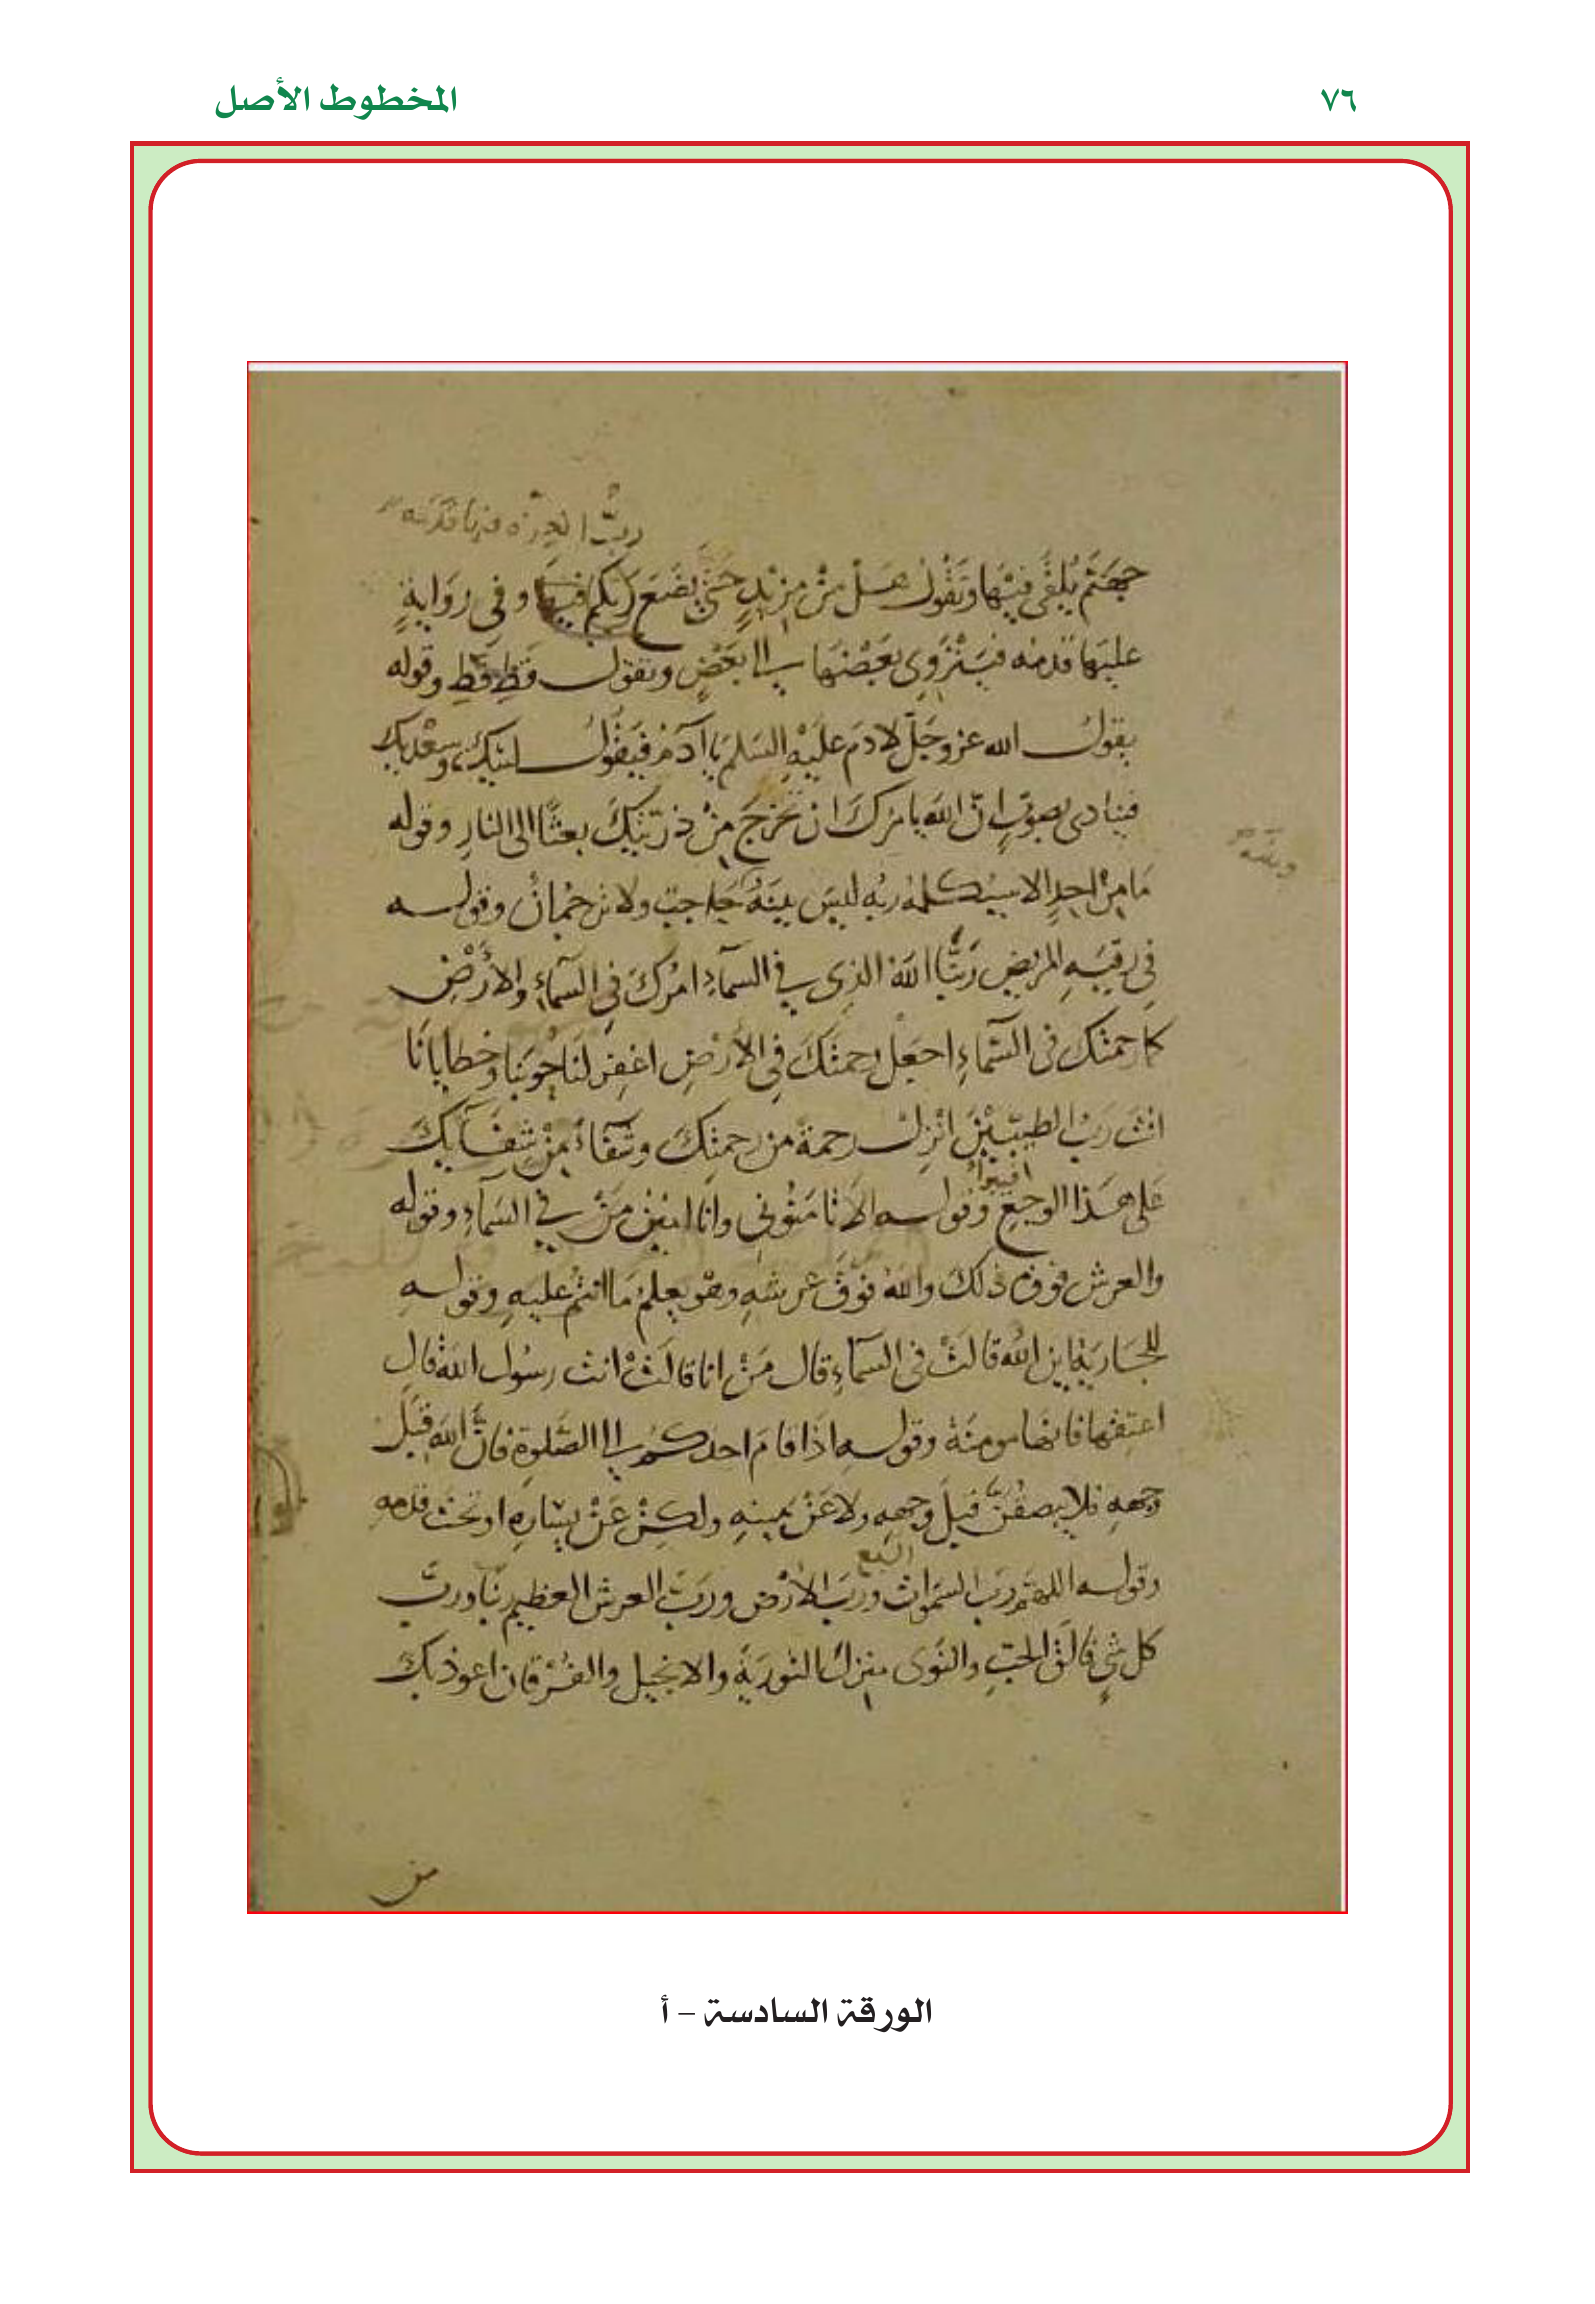 ٧٦
المخطوط الأصل
رب العزة فيها قدمه
جهنم يلقى فيها وتقول هل من مزيد حتى يضع ربكم فيها وفي رواية
عليها قدمه فينزوي بعضها الى بعض وتقول قط قط وقوله
يقول الله عز وجل لادم عليه السلم يا آدم فيقول لبيك وسعديك
فينادى بصوت ان الله يامرك ان تخرج من ذريتك بعثا الى النار وقوله
ما من احد الا سيكلمه ربه ليس بينه حاجب ولا ترجمان وقوله
وبينه
في رقيه المريض ربنا الله الذى في السماء امرك في السماء والارض
كما رحمتك في السماء اجعل رحمتك في الارض اغفر لنا حوبنا وخطايانا
انت رب الطيبين انزل رحمة من رحمتك وشفاء من شفائك
على هذا الوجع فيبرا وقوله الا تامنوني وانا امين من في السماء وقوله
والعرش فوق ذلك والله فوق عرشه وهو يعلم ما انتم عليه وقوله
للجارية اين الله قالت في السماء قال من انا قالت انت رسول الله قال
اعتقها فانها مومنة وقوله اذا قام احدكم الى الصلوة فان الله قبل
وجهه فلا يبصقن قبل وجهه ولا عن يمينه ولكن عن يساره او تحت قدمه
وقوله اللهم رب السموات السبع ورب الارض ورب العرش العظيم ربنا ورب
كل شي فالق الحب والنوى منزل التورية والانجيل والفرقان اعوذ بك
من
الورقة السادسة – أ